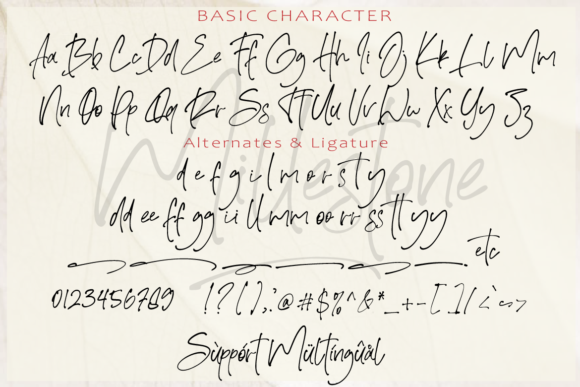 BASIC CHARACTER
Aa Bb Cc Dd Ee Ff Gg Hh Ii Jj Kk Ll Mm
Nn Oo Pp Qq Rr Ss Tt Uu Vv Ww Xx Yy Zz
Millestone
Alternates & Ligature
d e f g i l m o r s t y
dd ee ff gg ii ll mm oo rr ss tt yy
etc
0123456789
Sùppórt Mültíngûâl